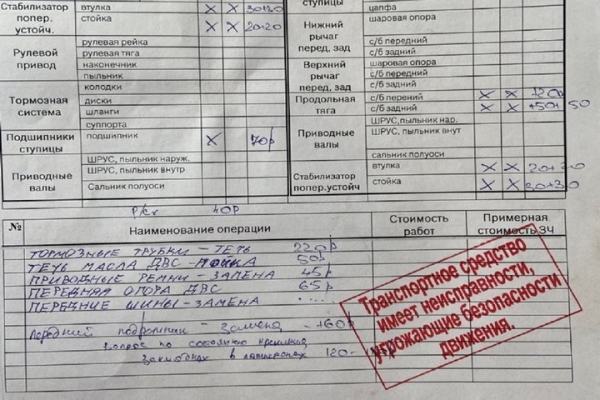 Стабилизатор попер. устойч.
втулка X X 30+30
стойка X X 20+20
Рулевой привод
рулевая рейка
рулевая тяга
наконечник
пыльник
Тормозная система
колодки
диски
шланги
суппорта
Подшипники ступицы
подшипник X 70р
Приводные валы
ШРУС, пыльник наруж.
ШРУС, пыльник внутр
Сальник полуоси
ступицы
цапфа
Нижний рычаг перед, зад
шаровая опора
с/б передний
с/б задний
Верхний рычаг перед, зад
шаровая опора
с/б передний
с/б задний
Продольная тяга
с/б перений X X
с/б задний X X 50
Приводные валы
ШРУС, пыльник нар.
ШРУС, пыльник внут
сальник полуоси
Стабилизатор попер.устойч
втулка X X
стойка X X
40р
№ Наименование операции Стоимость работ Примерная стоимость ЗЧ
ТОРМОЗНЫЕ ТРУБКИ - ТЕЧЬ 220р
ТЕЧЬ МАСЛА ДВС - МОЙКА 50р
ПРИВОДНЫЕ РЕМНИ - ЗАМЕНА 45р
ПЕРЕДНЯЯ ОПОРА ДВС 65р
ПЕРЕДНИЕ ШИНЫ - ЗАМЕНА ....
Передний подрамник - замена 160р
по состоянию
в 120-
Транспортное средство
имеет неисправности,
угрожающие безопасности
движения.